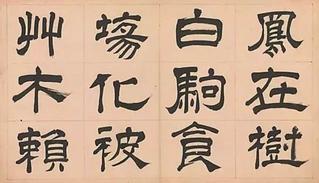 鳳在樹
白駒食
塲化被
艸木賴